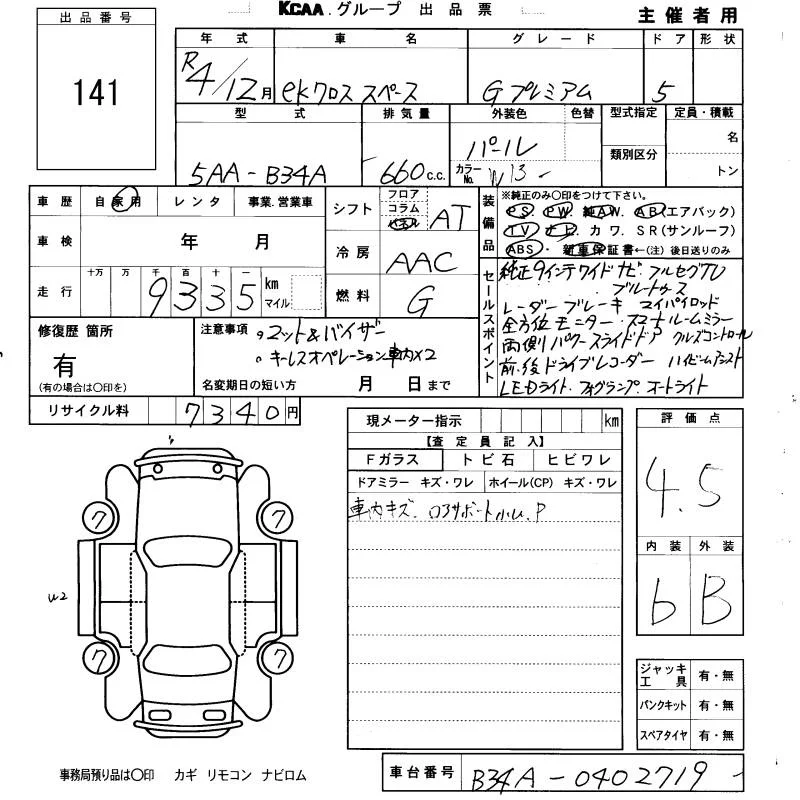 KCAA.グループ 出品票
主催者用
出品番号
141
年式 車名 グレード ドア 形状
R4/12月 ekクロス スペース Gプレミアム 5
型式 排気量 外装色 色替 型式指定 定員・積載
5AA-B34A 660c.c. パール 類別区分 名
カラーNo. W13 トン
車歴 自家用 レンタ 事業.営業車
車検 年 月
走行 十万 万 千 百 十 一
9335 km マイル
シフト フロア コラム パネル AT
冷房 AAC
燃料 G
装備品
※純正のみ○印をつけて下さい。
PS PW. 純AW. AB(エアバック)
TV ナビ. カワ. SR(サンルーフ)
ABS. 新車保証書←(注) 後日送りのみ
セールスポイント
純正9インチワイドナビ・フルセグTV
ブルートゥース
レーダーブレーキ マイパイロット
全方位モニター・スマートルームミラー
両側パワースライドドア クルズコントロール
前.後ドライブレコーダー ハイビームアシスト
LEDライト.フォグランプ.オートライト
修復歴 箇所
有
(有の場合は○印を)
注意事項 。マット&バイザー
。キーレスオペレーション車内×2
名変期日の短い方 月 日まで
リサイクル料 7340円
現メーター指示 km
【査定員記入】
Fガラス トビ石 ヒビワレ
ドアミラー キズ・ワレ ホイール(CP) キズ・ワレ
車内キズ. ロアサポート小U.P
評価点
4.5
内装 外装
b B
7 7
U2
7 7
ジャッキ工具 有・無
パンクキット 有・無
スペアタイヤ 有・無
事務局預り品は○印 カギ リモコン ナビロム
車台番号 B34A-0402719